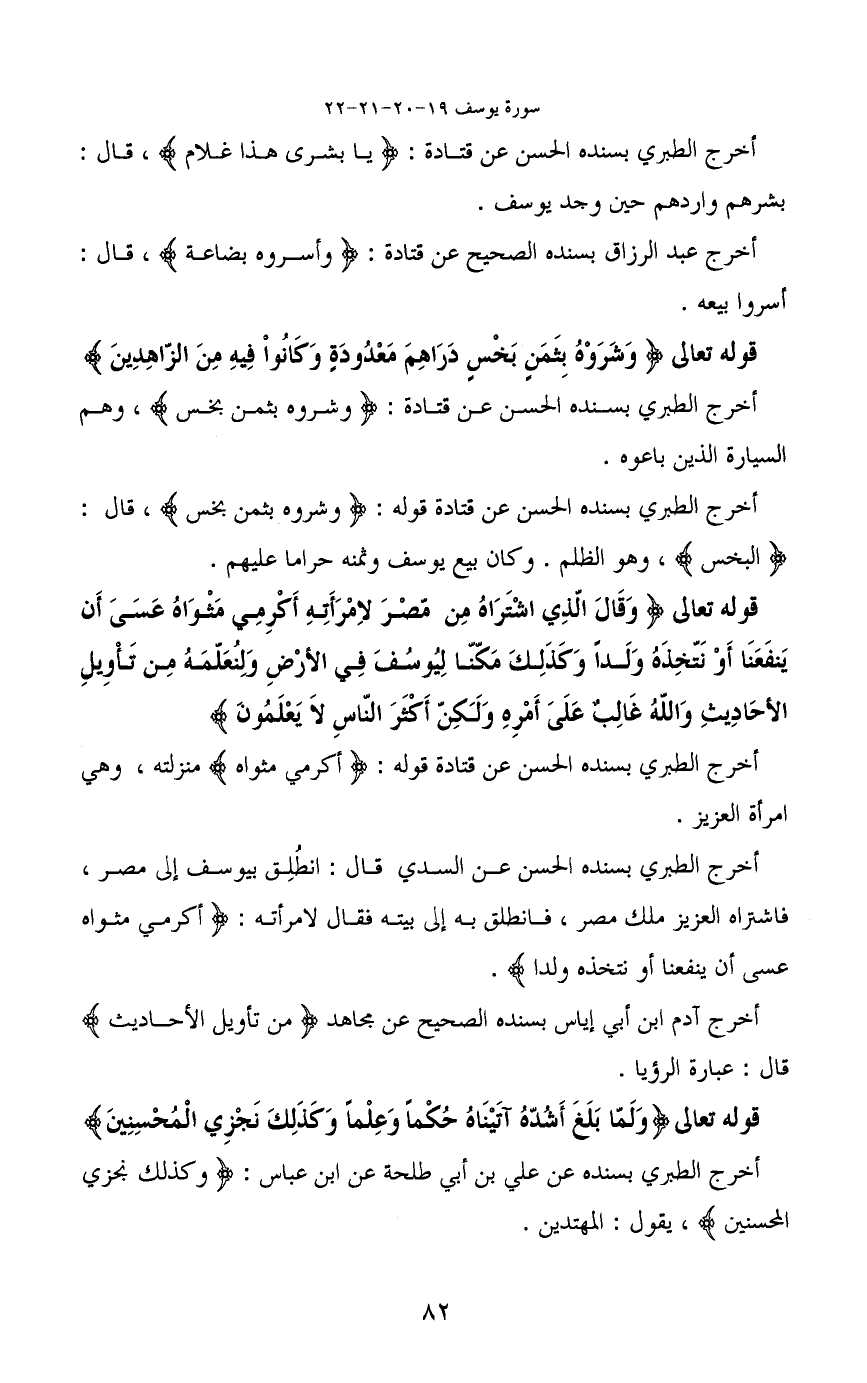 سورة يوسف ١٩-٢٠-٢١-٢٢
أخرج الطبري بسنده الحسن عن قتادة : ﴿ يا بشرى هذا غلام ﴾ ، قال :
بشرهم واردهم حين وجد يوسف .
أخرج عبد الرزاق بسنده الصحيح عن قتادة : ﴿ وأسروه بضاعة ﴾ ، قال :
أسروا بيعه .
قوله تعالى ﴿ وَشَرَوْهُ بِثَمَنٍ بَخْسٍ دَرَاهِمَ مَعْدُودَةٍ وَكَانُواْ فِيهِ مِنَ الزّاهِدِينَ ﴾
أخرج الطبري بسنده الحسن عن قتادة : ﴿ وشروه بثمن بخس ﴾ ، وهم
السيارة الذين باعوه .
أخرج الطبري بسنده الحسن عن قتادة قوله : ﴿ وشروه بثمن بخس ﴾ ، قال :
﴿ البخس ﴾ ، وهو الظلم . وكان بيع يوسف وثمنه حراما عليهم .
قوله تعالى ﴿ وَقَالَ الّذِي اشْتَرَاهُ مِن مّصْرَ لاِمْرَأَتِهِ أَكْرِمِي مَثْوَاهُ عَسَىَ أَن
يَنفَعَنَا أَوْ نَتّخِذَهُ وَلَداً وَكَذَلِكَ مَكّنّا لِيُوسُفَ فِي الأرْضِ وَلِنُعَلّمَهُ مِن تَأْوِيلِ
الأحَادِيثِ وَاللّهُ غَالِبٌ عَلَىَ أَمْرِهِ وَلَـَكِنّ أَكْثَرَ النّاسِ لاَ يَعْلَمُونَ ﴾
أخرج الطبري بسنده الحسن عن قتادة قوله : ﴿ أكرمي مثواه ﴾ منزلته ، وهي
امرأة العزيز .
أخرج الطبري بسنده الحسن عن السدي قال : انطُلِق بيوسف إلى مصر ،
فاشتراه العزيز ملك مصر ، فانطلق به إلى بيته فقال لامرأته : ﴿ أكرمي مثواه
عسى أن ينفعنا أو نتخذه ولدا ﴾ .
أخرج آدم ابن أبي إياس بسنده الصحيح عن مجاهد ﴿ من تأويل الأحاديث ﴾
قال : عبارة الرؤيا .
قوله تعالى ﴿ وَلَمّا بَلَغَ أَشُدّهُ آتَيْنَاهُ حُكْماً وَعِلْماً وَكَذَلِكَ نَجْزِي الْمُحْسِنِينَ ﴾
أخرج الطبري بسنده عن علي بن أبي طلحة عن ابن عباس : ﴿ وكذلك نجزي
المحسنين ﴾ ، يقول : المهتدين .
٨٢